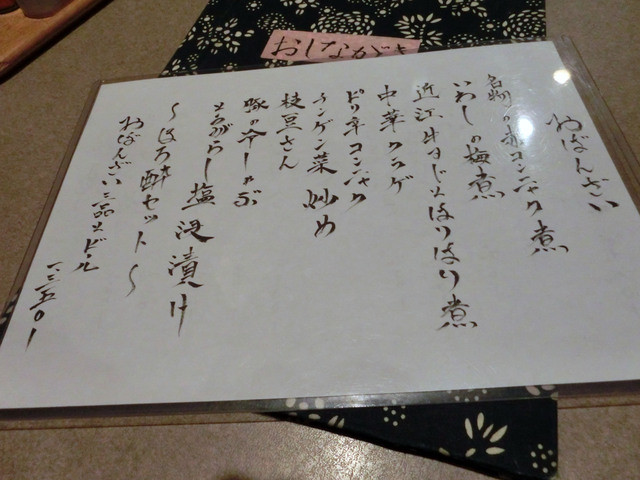 おしながき
おばんざい
名物の赤コンニャク煮
いわしの梅煮
近江牛すじとはりはり煮
中華クラゲ
ピリ辛コンニャク
チンゲン菜炒め
枝豆さん
豚の冷しゃぶ
とうがらし塩浸漬け
～ほろ酔セット～
おばんざい二品とビール
一三五〇一